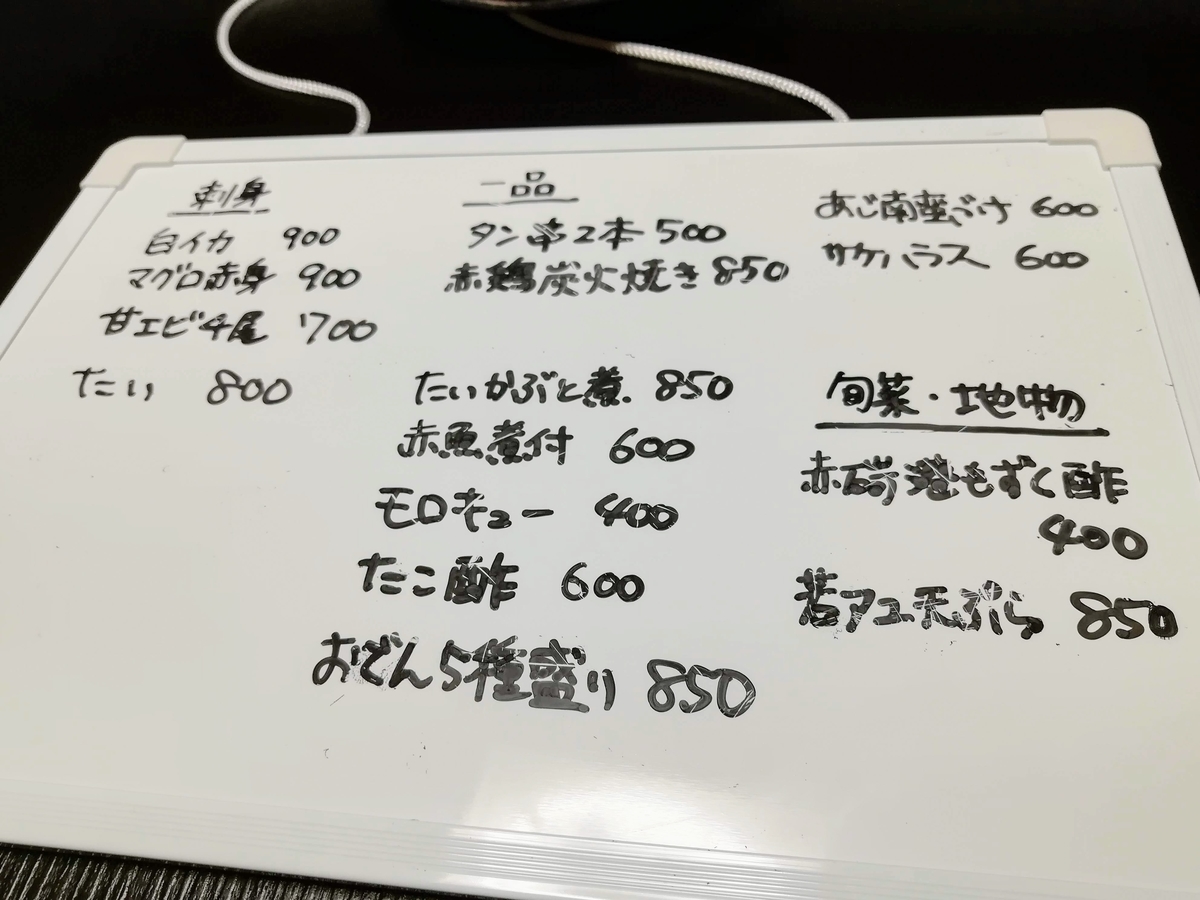 刺身
白イカ 900
マグロ赤身 900
甘エビ4尾 700
たい 800
一品
タン串2本 500
赤鶏炭火焼き 850
たいかぶと煮 850
赤魚煮付 600
モロキュー 400
たこ酢 600
おでん5種盛り 850
あじ南蛮づけ 600
サケハラス 600
旬菜・地物
赤碕港もずく酢
400
若アユ天ぷら 850